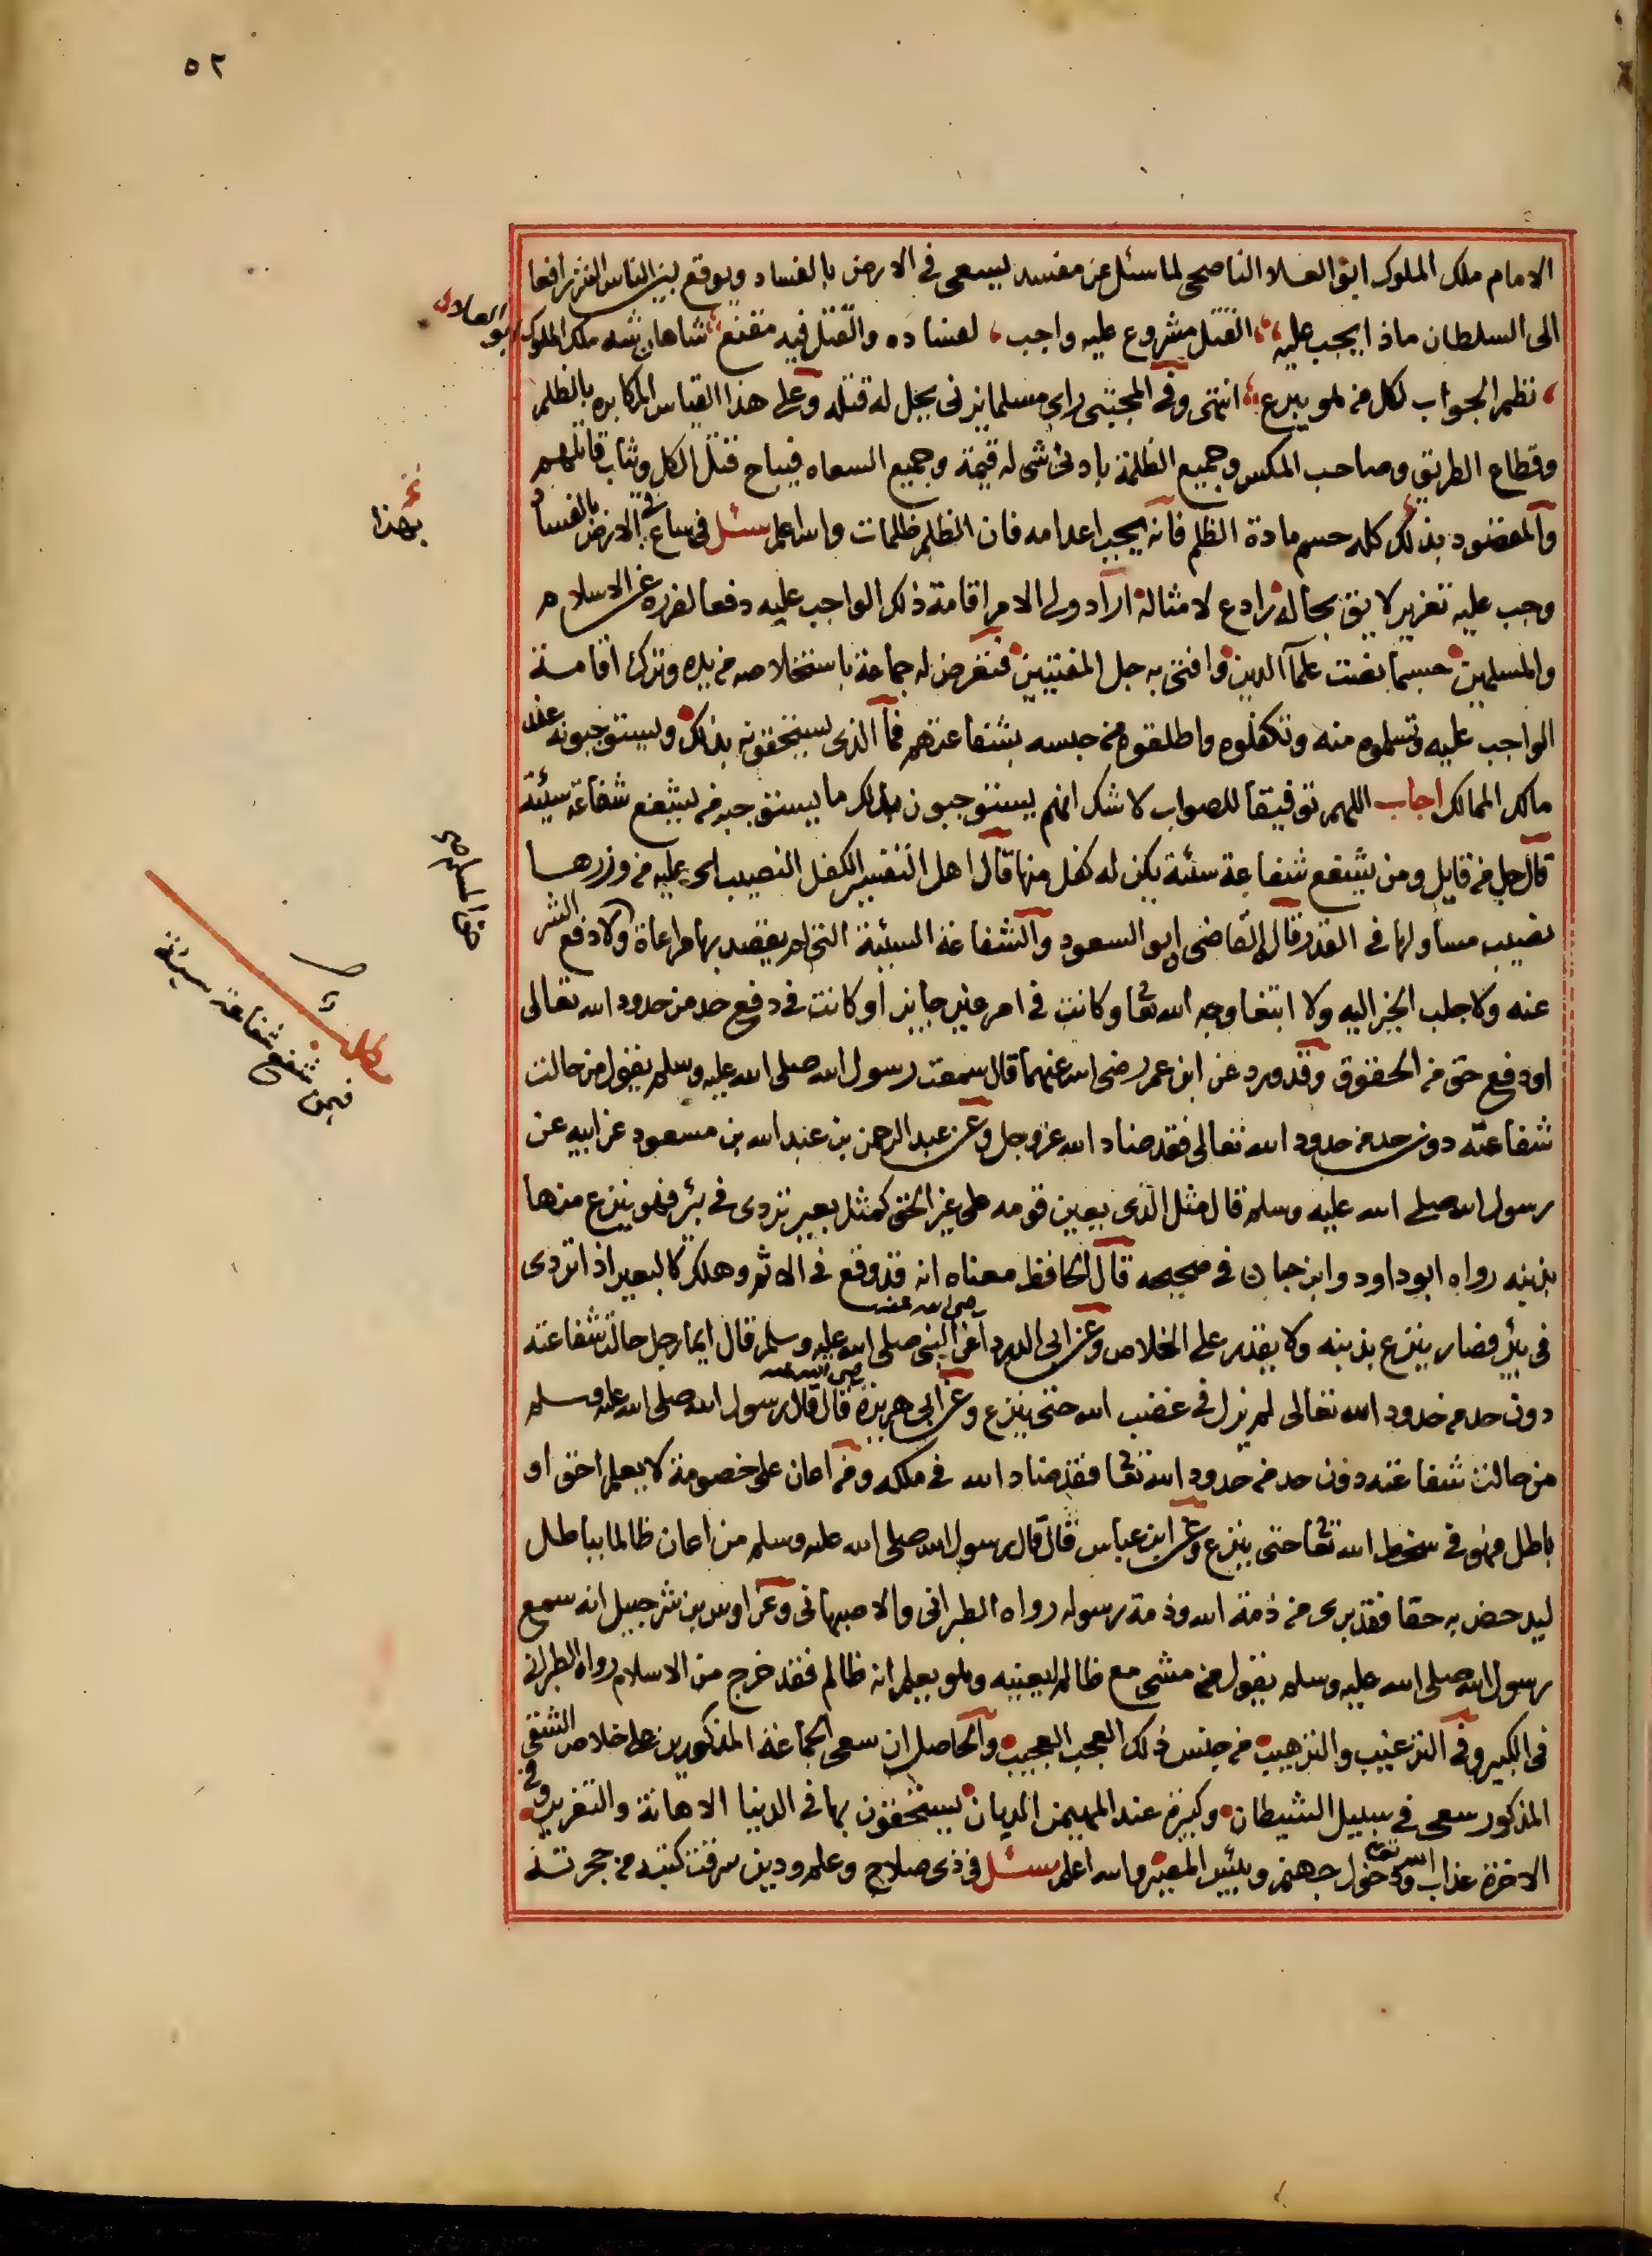 ٥٢
الامام ملك الملوك ابو العلا الناصحي لما سئل عن مفسد يسعى في الارض بالفساد ويوقع بين الناس الشر رافعا
الى السلطان ماذا يجب عليه القتل مشروع عليه واجب لفساده والقتل فيه مقنع شاهان شه ملك الملوك ابو العلا
نظم الجواب لكل من هو يبرع انتهى وفي المجتبى راى مسلما يزني يحل له قتله وعلى هذا القياس المكابره بالظلم
وقطاع الطريق وصاحب المكس وجميع الظلمة بادنى شي له قيمة وجميع السعاه فيباح قتل الكل ويثاب قاتلهم
والمقصود بذلك كله حسم مادة الظلم فانه يجب اعدامه فان الظلم ظلمات والله اعلم سئل في ساع في الارض بالفساد
بهذا
وجب عليه تعزير لايق بحاله رادع لامثاله اراد ولي الامر اقامة ذلك الواجب عليه دفعا لضرره عن الاسلام
والمسلمين حسبما نصت علما الدين وافتى به جل المفتيين فتعرض له جماعة باستخلاصه من يده وترك اقامة
الواجب عليه وتسلموه منه وتكفلوه واطلقوه من حبسه بشفاعتهم فما الذي يستحقونه بذلك ويستوجبونه عند
مالك الممالك اجاب اللهم توفيقا للصواب لا شك انهم يستوجبون بذلك ما يستوجبه من يشفع شفاعة سيئة
قال جل من قايل ومن يشفع شفاعة سئة يكن له كفل منها قال اهل التفسير الكفل النصيب اي عليه من وزرها
نصيب مساو لها في القدر قال القاضي ابو السعود والشفاعة السيئة التي لم يقصد بها مراعاة ولا دفع الشر
عنه ولا جلب الخير اليه ولا ابتغا وجه الله تعا وكانت في امر غير جايز او كانت في دفع حد من حدود الله تعالى
فيمن شفع شفاعة سيئة
او دفع حق من الحقوق وقد ورد عن ابن عمر رضي الله عنهما قال سمعت رسول الله صلى الله عليه وسلم يقول من حالت
شفاعته دون حد من حدود الله تعالى فقد ضاد الله عز وجل وعن عبد الرحمن بن عبد الله بن مسعود عن ابيه عن
رسول الله صلى الله عليه وسلم قال مثل الذي يعين قومه على غير الحق كمثل بعير تردى في بئر فهو ينزع منها
بذنبه رواه ابو داود وابن حبان في صحيحه قال الحافظ معناه انه قد وقع في الاثم وهلك كالبعير اذا تردى
في بئر فصار ينزع بذنبه ولا يقدر على الخلاص وعن ابي الدردا رضي الله عنه عن النبي صلى الله عليه وسلم قال ايما رجل حالت شفاعته
دون حد من حدود الله تعالى لم يزل في غضب الله حتى ينزع وعن ابي هريرة رضي الله عنه قال قال رسول الله صلى الله عليه وسلم
من حالت شفاعته دون حد من حدود الله تعا فقد ضاد الله في ملكه ومن اعان على خصومة لا يعلم احق او
باطل فهو في سخط الله تعا حتى ينزع وعن ابن عباس قال قال رسول الله صلى الله عليه وسلم من اعان ظالما بباطل
ليدحض به حقا فقد برى من ذمة الله وذمة رسوله رواه الطبراني والاصبهاني وعن اوس بن شرحبيل انه سمع
رسول الله صلى الله عليه وسلم يقول من مشى مع ظالم ليعينه وهو يعلم انه ظالم فقد خرج من الاسلام رواه الطبراني
في الكبير وفي الترغيب والترهيب من جنس ذلك العجب العجيب والحاصل ان سعي الجماعة المذكورين على خلاص الشقي
المذكور سعى في سبيل الشيطان وكبيرة عند المهيمن الديان يستحقون بها في الدنيا الاهانة والتعزير وفي
الاخرة عذاب الله تعالى ودخول جهنم وبئس المصير والله اعلم سئل في ذي صلاح وعلم ودين سرقت كتبه من حجرته